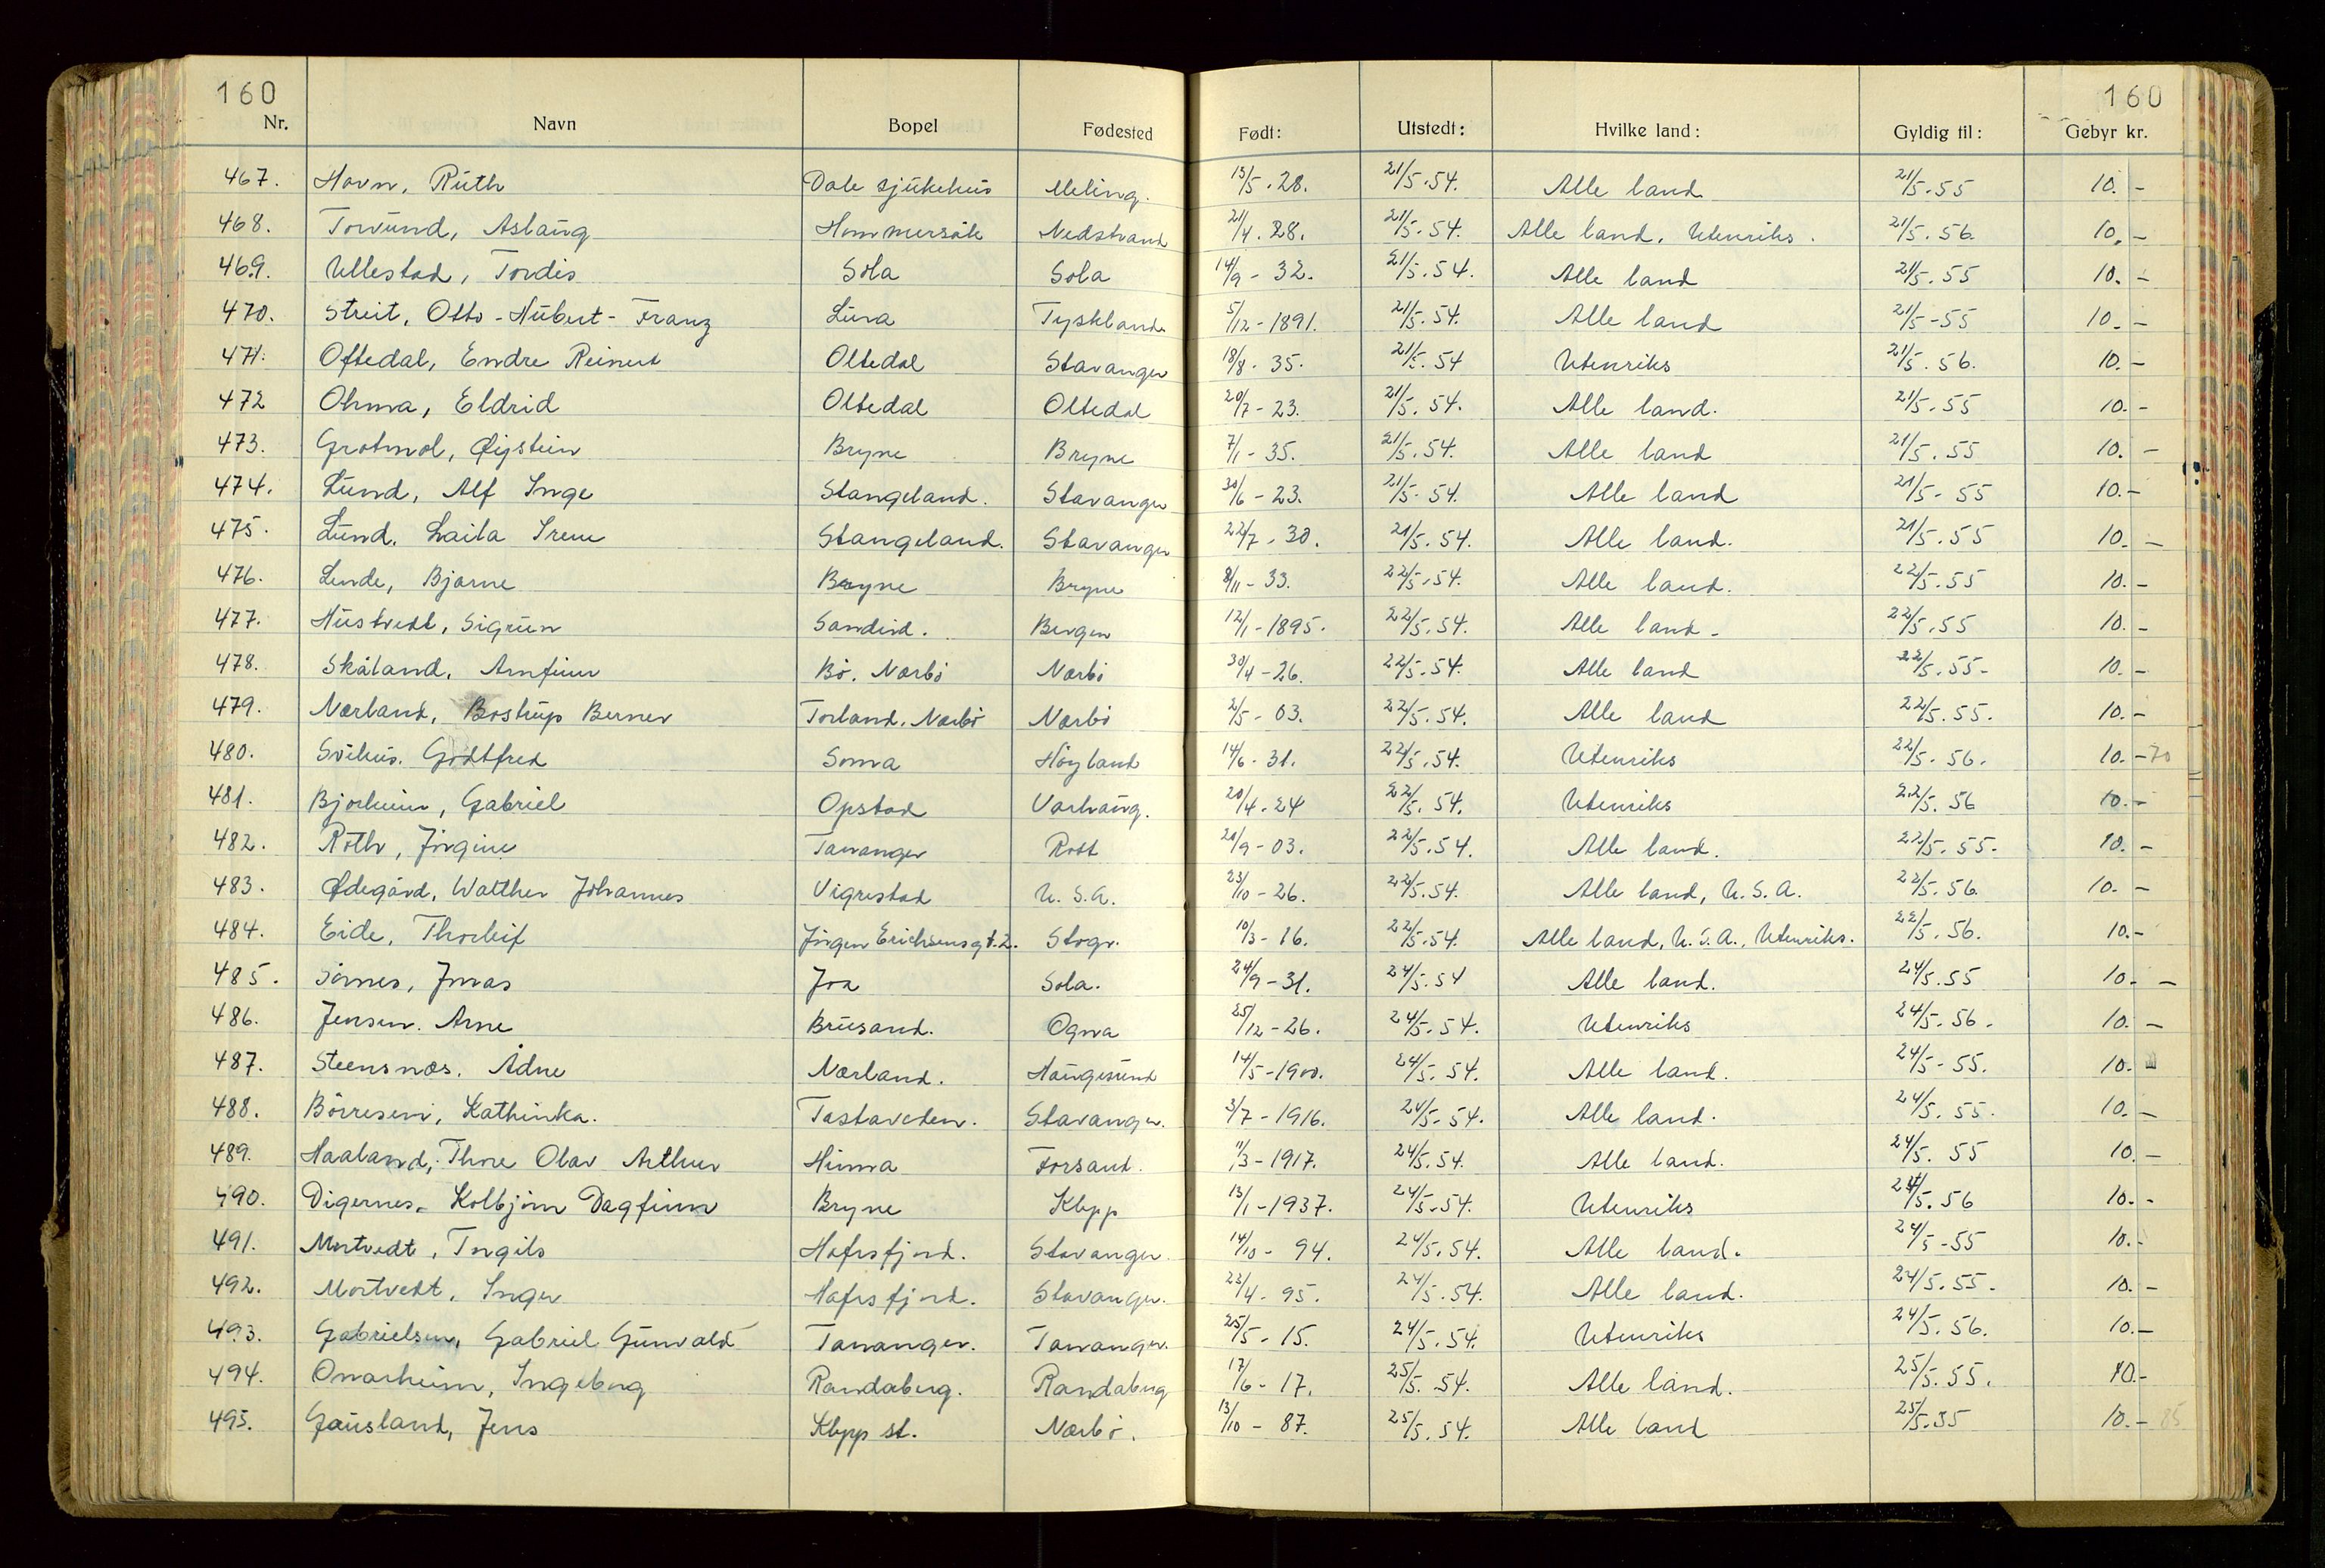 160 160
Nr. Navn Bopel Fødested Født: Utstedt: Hvilke land: Gyldig til: Gebyr kr.
467. Havn, Ruth Dale sjukehus Meling. 13/5.28. 21/5.54. Alle land 21/5.55 10.-
468. Torvund, Aslaug Hommersåk Nedstrand 21/4.28. 21/5.54. Alle land, Utenriks. 21/5.56. 10.-
469. Ullestad, Tordis Sola Sola 14/9-32. 21/5.54. Alle land 21/5.55 10.-
470. Streit, Otto-Hubert-Franz Lura Tyskland 5/12-1891. 21/5.54. Alle land 21/5-55 10.-
471. Oftedal, Endre Reinert Oltedal Stavanger 18/8-35. 21/5.54 Utenriks 21/5.56. 10.-
472 Ohma, Eldrid Oltedal Oltedal 20/7-23. 21/5.54. Alle land. 21/5.55 10.-
473. Grotmol, Øystein Bryne Bryne 7/1-35. 21/5.54. Alle land 21/5.55 10.-
474. Lund, Alf Inge Stangeland. Stavanger 30/6-23. 21/5-54. Alle land 21/5-55 10.-
475. Lund, Laila Irene Stangeland. Stavanger 22/7-30. 21/5.54. Alle land. 21/5.55 10.-
476. Lende, Bjarne Bryne Bryne 8/11-33. 22/5.54. Alle land. 22/5.55 10.-
477. Hustvedt, Sigrun Sandeid. Bergen 12/1-1895. 22/5.54. Alle land. 22/5.55 10.-
478. Skåland, Arnfinn Bø, Nærbø Nærbø 30/4-26. 22/5.54. Alle land 22/5.55- 10.-
479. Nærland, Bostrup Berner Torland, Nærbø Nærbø 2/5-03. 22/5.54. Alle land 22/5.55. 10.-
480. Svihus, Godtfred Soma Høyland 14/6-31. 22/5.54. Utenriks 22/5-56. 10.- 70
481. Bjorheim, Gabriel Opstad Varhaug. 20/4-24 22/5.54. Utenriks 22/5.56 10.-
482. Roth, Jørgine Tananger Rott 20/9-03. 22/5.54. Alle land. 22/5.55. 10.-
483. Ødegård, Walther Johannes Vigrestad U.S.A. 23/10-26. 22/5.54. Alle land, U.S.A. 22/5.56. 10.-
484. Eide, Thorleif Jørgen Erichsensgt.2. Stvgr. 10/3-16. 22/5.54. Alle land, U.S.A., Utenriks. 22/5.56. 10.-
485. Sømes, Jonas Joa Sola. 24/9-31. 24/5.54 Alle land. 24/5.55 10.-
486. Jensen, Arne Brusand. Ogna 25/12-26. 24/5.54. Utenriks 24/5-56. 10.-
487. Steensnæs, Ådne Nærland. Haugesund 14/5-1900. 24/5.54. Alle land. 24/5-55. 10.
488. Børresen, Kathinka. Tastaveden. Stavanger. 3/7-1916. 24/5-54. Alle land. 24/5.55. 10.-
489. Haaland, Thore Olav Arthur Hinna Forsand. 11/3-1917. 24/5.54. Alle land. 24/5.55 10.-
490. Digernes, Kolbjørn Dagfinn Bryne Klepp 13/1-1937. 24/5.54. Utenriks 24/5.56 10.-
491. Mortvedt, Torgils Hafrsfjord. Stavanger. 14/10-94. 24/5.54. Alle land. 24/5-55 10.-
492. Mortvedt, Inger Hafrsfjord. Stavanger. 23/4-95. 24/5.54. Alle land. 24/5.55. 10.-
493. Gabrielsen, Gabriel Gunvald Tananger. Tananger. 25/5-15. 24/5.54. Utenriks 24/5.56. 10.-
494. Onarheim, Ingeborg Randaberg. Randaberg 17/6-17. 25/5.54. Alle land. 25/5.55. 10.-
495. Gausland, Jens Klepp st. Nærbø. 13/10-87. 25/5.54. Alle land 25/5.55 10.- 85